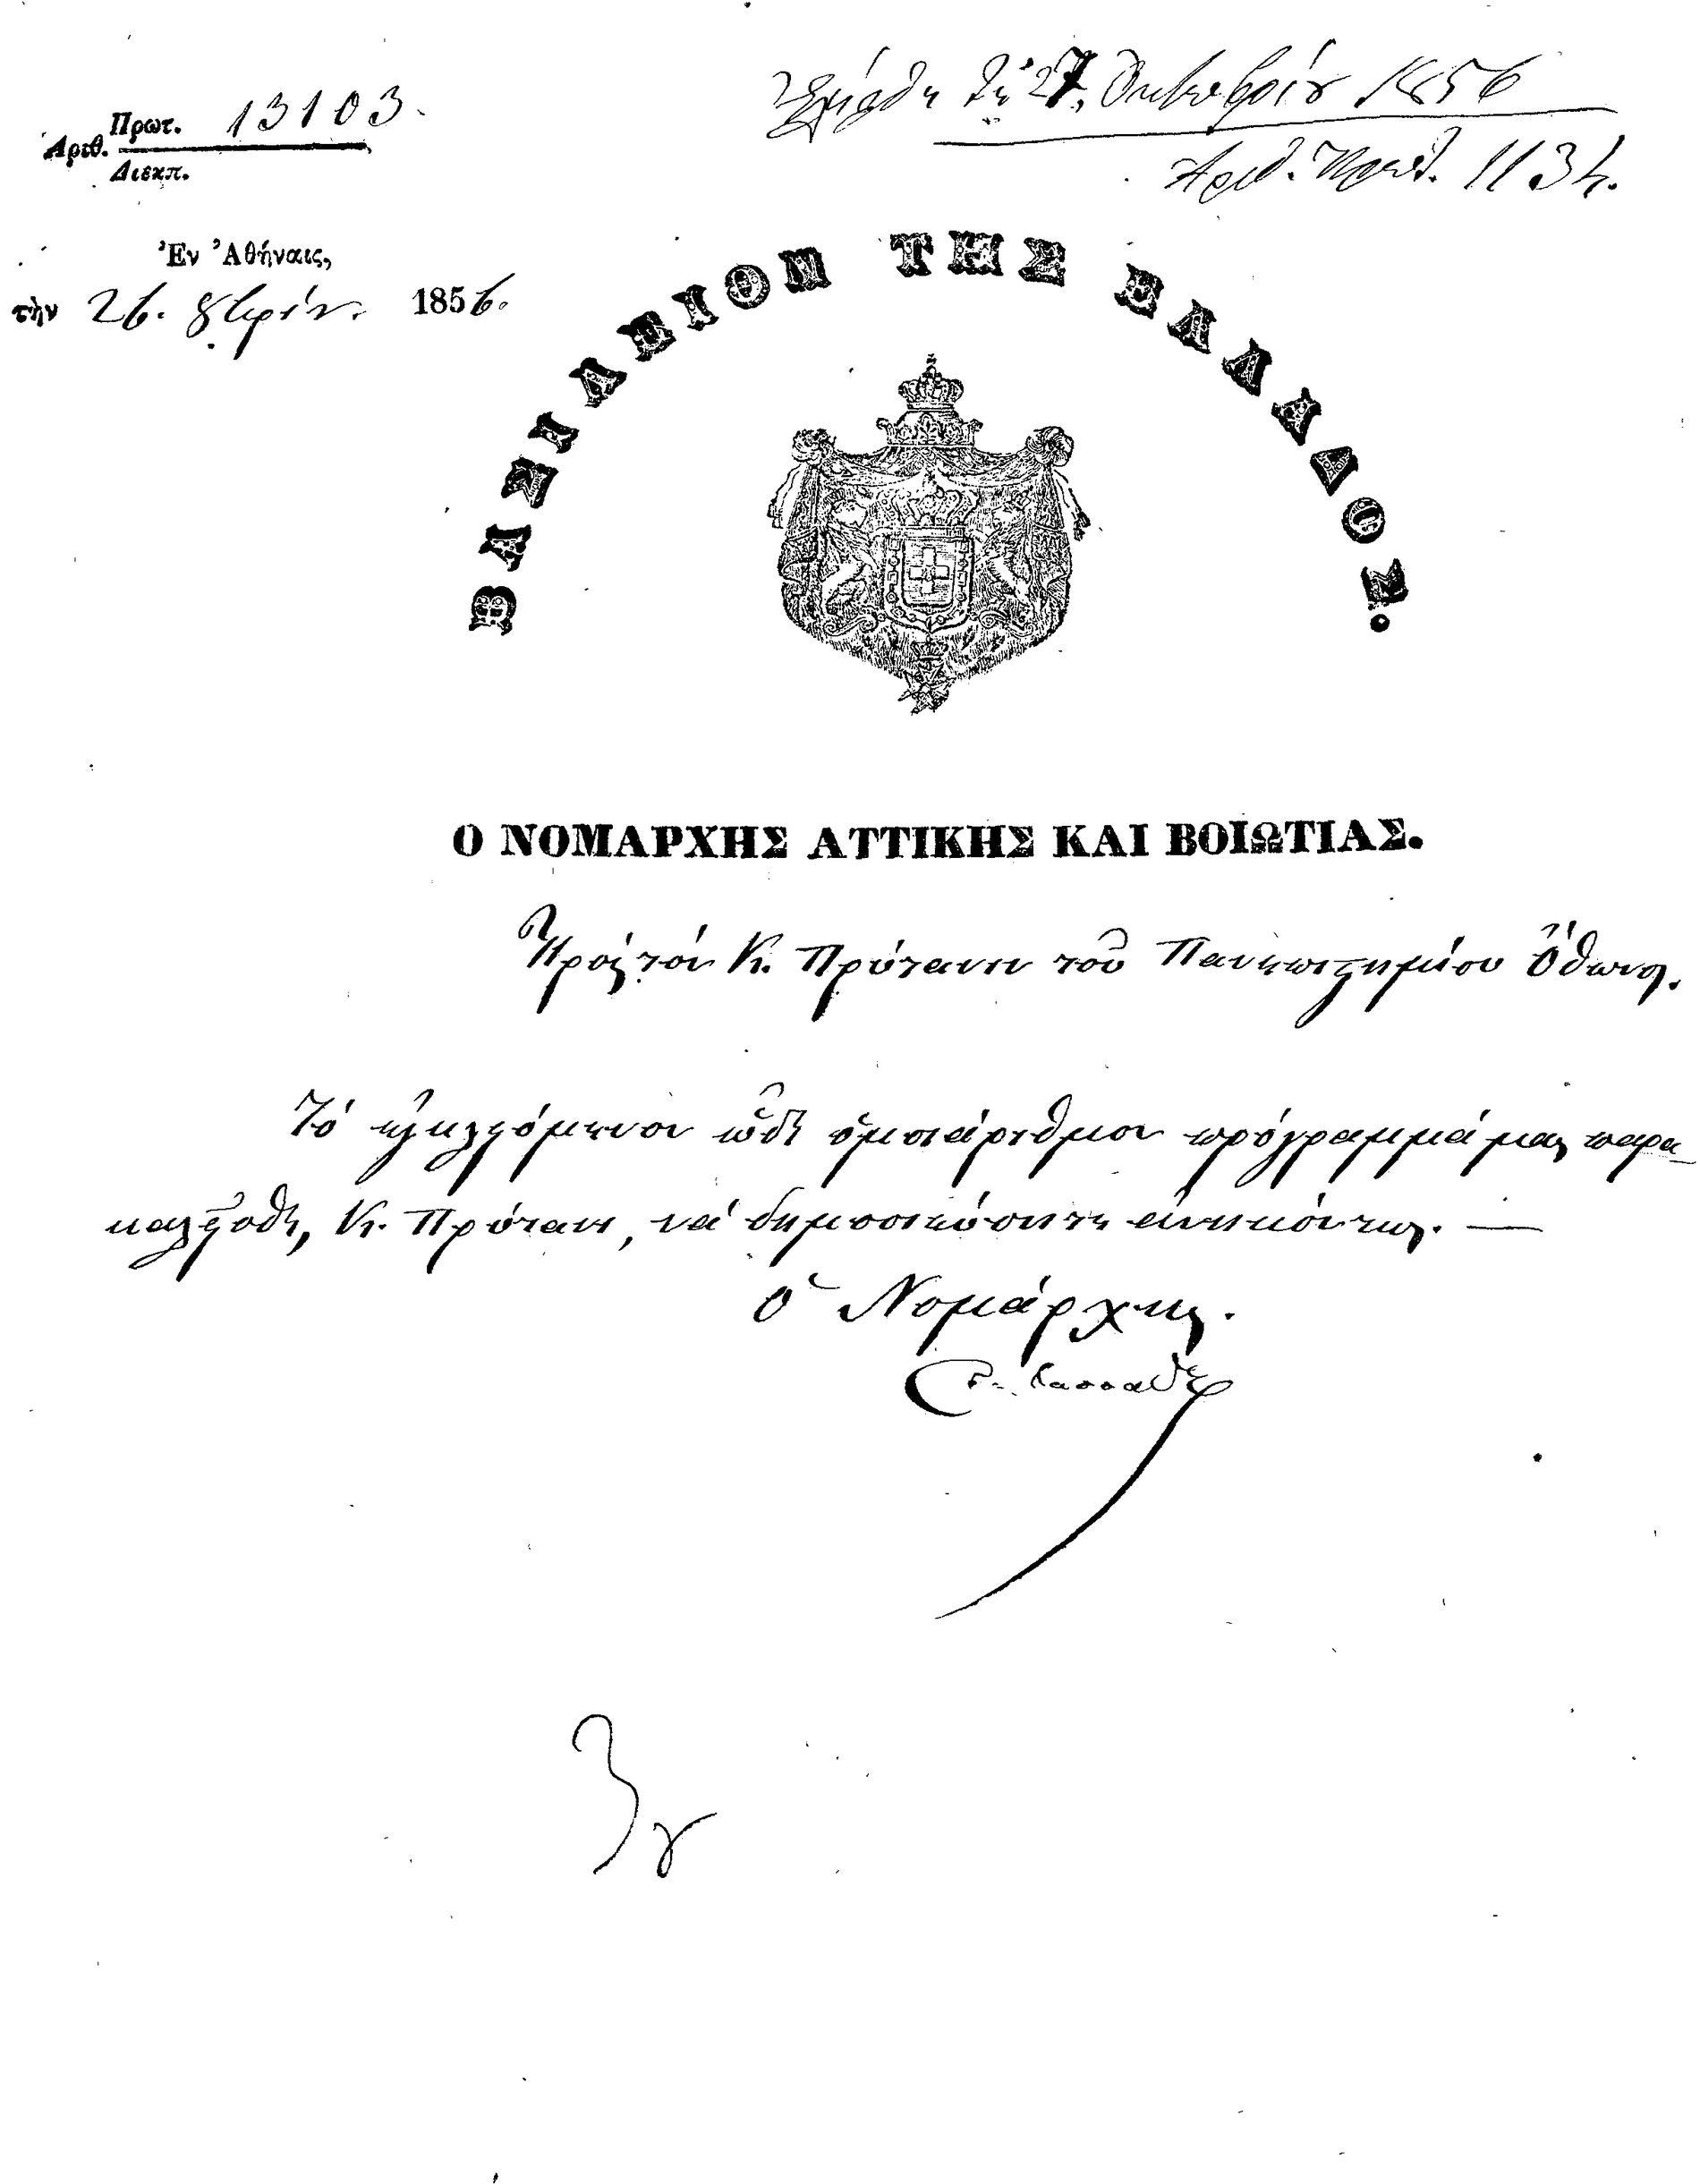 Πρωτ. 13103.
Ἀριθ.
Διεκπ.
Ἐλήφθη τῇ 27 Ὀκτωβρίου 1856
Ἀριθ. Πρωτ. 1134.
Ἐν Ἀθήναις,
τὴν 26. 8βρίου. 1856.
ΒΑΣΙΛΕΙΟΝ ΤΗΣ ΕΛΛΑΔΟΣ.
Ο ΝΟΜΑΡΧΗΣ ΑΤΤΙΚΗΣ ΚΑΙ ΒΟΙΩΤΙΑΣ.
Πρὸς τὸν Κ. Πρύτανιν τοῦ Πανεπιστημίου Ὄθωνος.
Τὸ ἐγκλειόμενον ὧδε ὁμοιάριθμον πρόγραμμά μας παρα-
καλεῖσθε, Κ. Πρύτανι, νὰ δημοσιεύσητε ἀνηκόντως. —
Ὁ Νομάρχης.